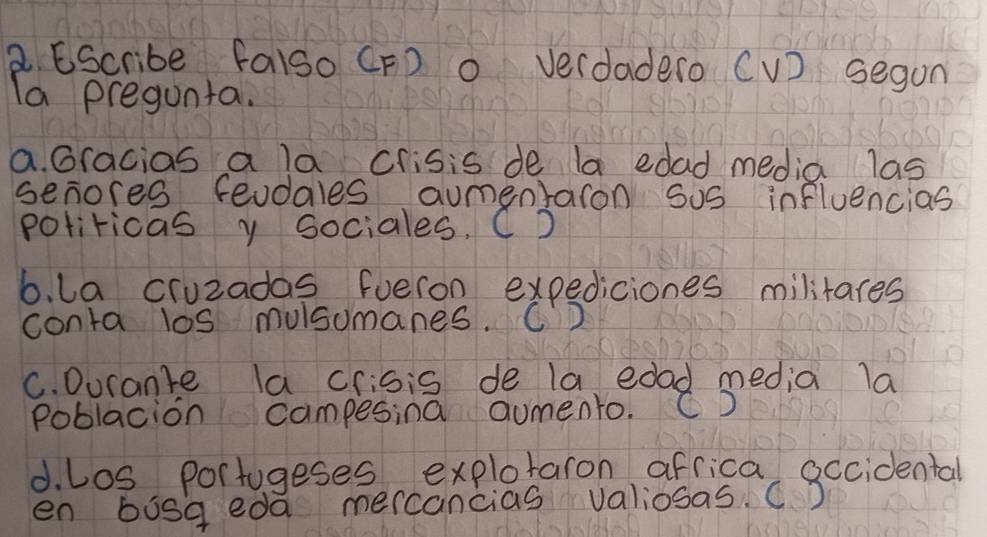 2. Escribe falso (F) o verdadero (V) segun
la pregunta.
a. Gracias a la crisis de la edad media las
señores feudales aumentaron sus influencias
politicas y sociales. ( )
b. La cruzadas fueron expediciones militares
conta los mulsumanes. ( )
c. Durante la crisis de la edad media la
Población campesina aumento. ( )
d. Los portugeses explotaron africa occidental
en búsq eda mercancias valiosas. ( )